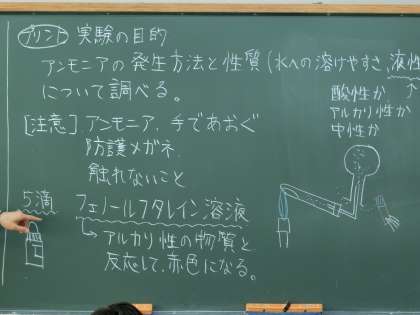 プリント 実験の目的
アンモニアの発生方法と性質(水への溶けやすさ、液性
について調べる。
酸性か
アルカリ性か
中性か
[注意] アンモニア、手であおぐ
防護メガネ
触れないこと
5滴 フェノールフタレイン溶液
↳ アルカリ性の物質と
反応して、赤色になる。